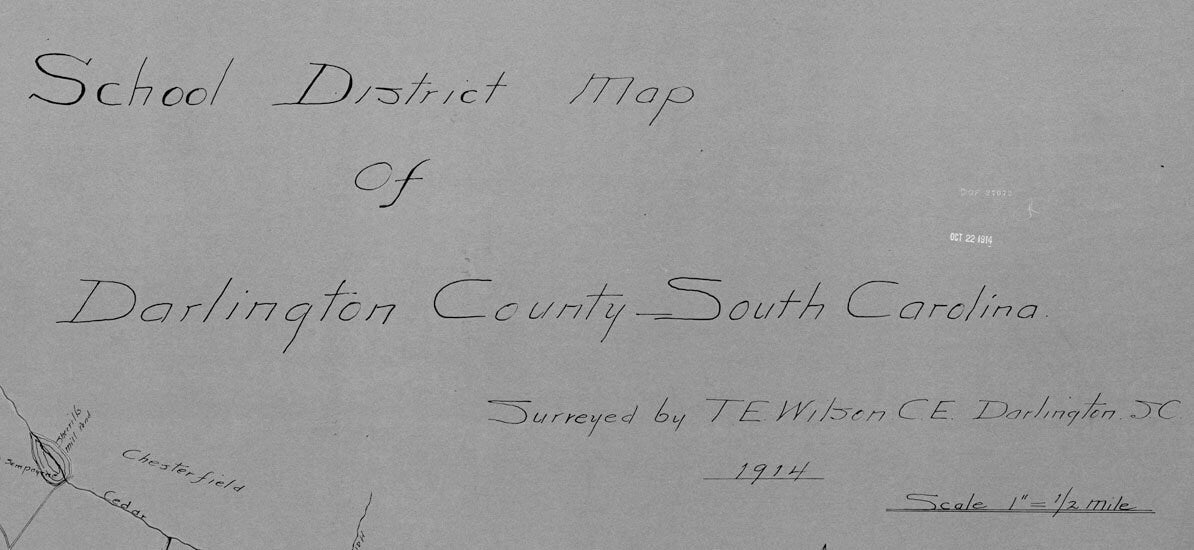 School District Map
Of
Darlington County = South Carolina.
OCT 22 1914
Surveyed by T.E. Wilson. C.E. Darlington. S.C.
1914
Scale 1" = 1/2 mile
mill Pond
Chesterfield
Cedar